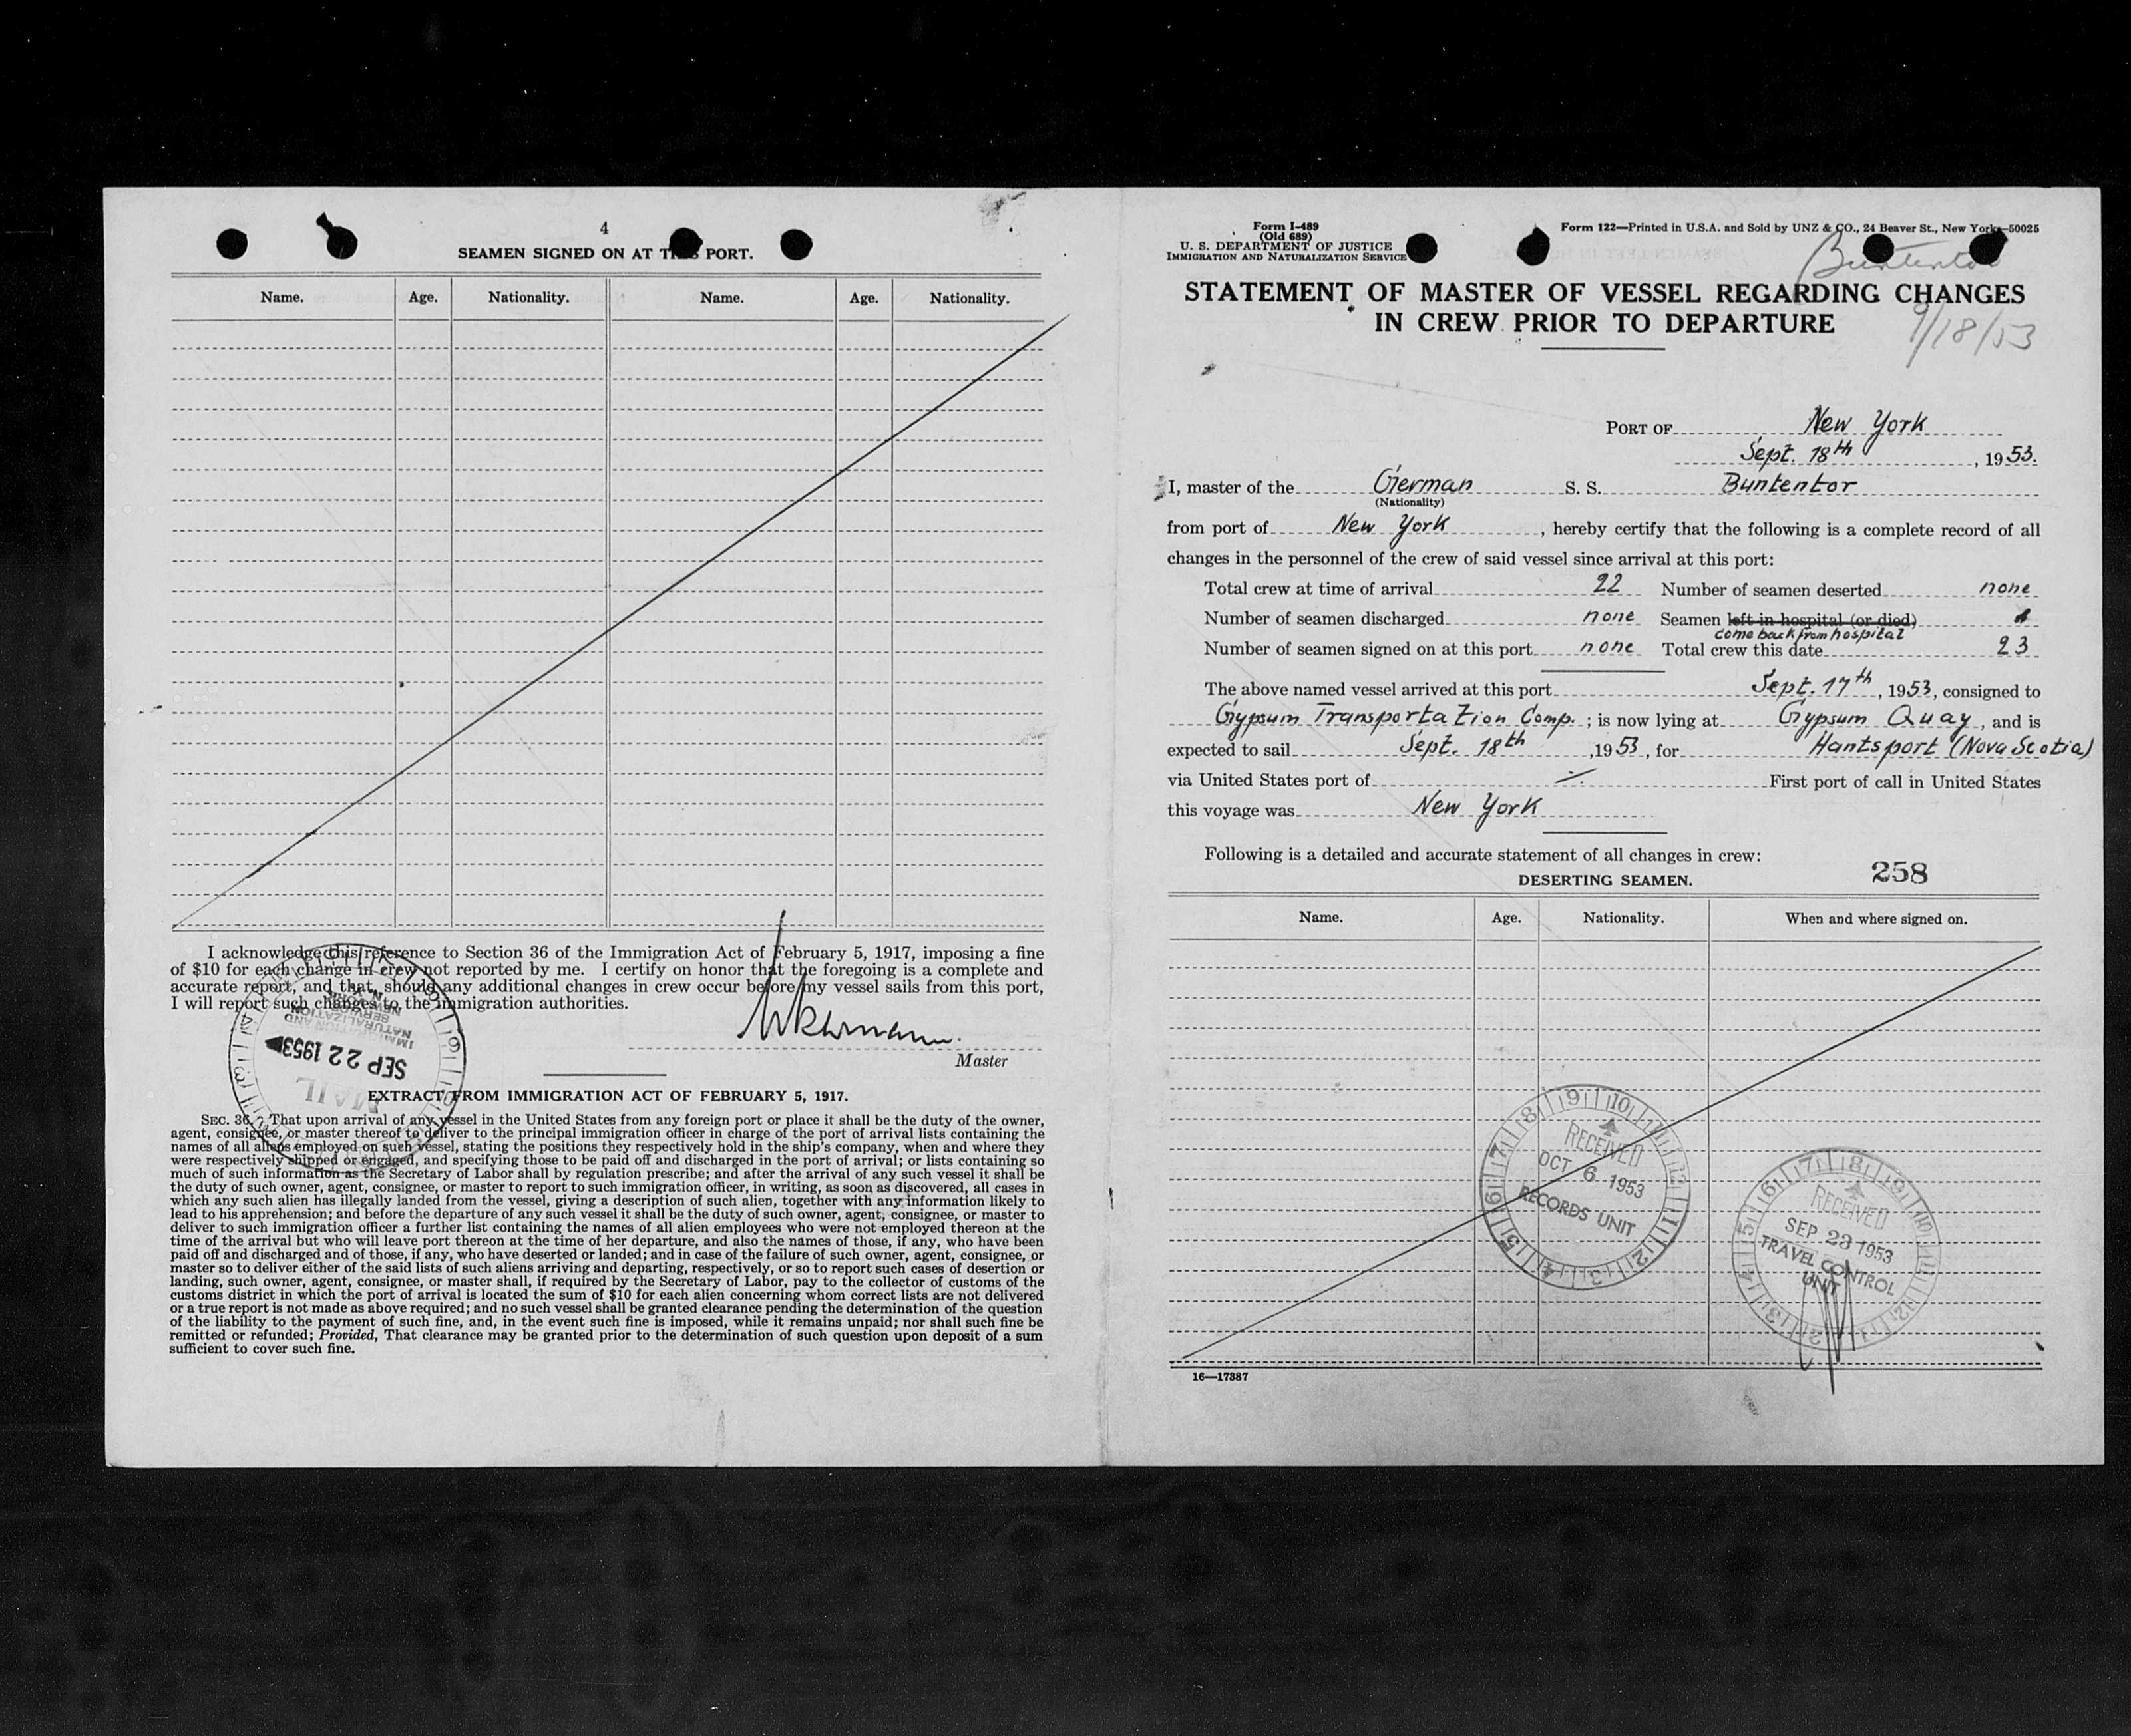 4
SEAMEN SIGNED ON AT THIS PORT.
Name. Age. Nationality. Name. Age. Nationality.
I acknowledge this reference to Section 36 of the Immigration Act of February 5, 1917, imposing a fine
of $10 for each change in crew not reported by me. I certify on honor that the foregoing is a complete and
accurate report, and that, should any additional changes in crew occur before my vessel sails from this port,
I will report such changes to the immigration authorities.
Master
IMMIGRATION AND
NATURALIZATION
SERVICE
NEW YORK, N.Y.
SEP 22 1953
MAIL
EXTRACT FROM IMMIGRATION ACT OF FEBRUARY 5, 1917.
SEC. 36. That upon arrival of any vessel in the United States from any foreign port or place it shall be the duty of the owner,
agent, consignee, or master thereof to deliver to the principal immigration officer in charge of the port of arrival lists containing the
names of all aliens employed on such vessel, stating the positions they respectively hold in the ship's company, when and where they
were respectively shipped or engaged, and specifying those to be paid off and discharged in the port of arrival; or lists containing so
much of such information as the Secretary of Labor shall by regulation prescribe; and after the arrival of any such vessel it shall be
the duty of such owner, agent, consignee, or master to report to such immigration officer, in writing, as soon as discovered, all cases in
which any such alien has illegally landed from the vessel, giving a description of such alien, together with any information likely to
lead to his apprehension; and before the departure of any such vessel it shall be the duty of such owner, agent, consignee, or master to
deliver to such immigration officer a further list containing the names of all alien employees who were not employed thereon at the
time of the arrival but who will leave port thereon at the time of her departure, and also the names of those, if any, who have been
paid off and discharged and of those, if any, who have deserted or landed; and in case of the failure of such owner, agent, consignee, or
master so to deliver either of the said lists of such aliens arriving and departing, respectively, or so to report such cases of desertion or
landing, such owner, agent, consignee, or master shall, if required by the Secretary of Labor, pay to the collector of customs of the
customs district in which the port of arrival is located the sum of $10 for each alien concerning whom correct lists are not delivered
or a true report is not made as above required; and no such vessel shall be granted clearance pending the determination of the question
of the liability to the payment of such fine, and, in the event such fine is imposed, while it remains unpaid; nor shall such fine be
remitted or refunded; Provided, That clearance may be granted prior to the determination of such question upon deposit of a sum
sufficient to cover such fine.
Form I-489
(Old 689)
U. S. DEPARTMENT OF JUSTICE
IMMIGRATION AND NATURALIZATION SERVICE
Form 122—Printed in U.S.A. and Sold by UNZ & CO., 24 Beaver St., New York—50025
Buntentor
STATEMENT OF MASTER OF VESSEL REGARDING CHANGES
IN CREW PRIOR TO DEPARTURE
9/18/53
PORT OF New York
Sept. 18th, 1953.
I, master of the German S. S. Buntentor
(Nationality)
from port of New York, hereby certify that the following is a complete record of all
changes in the personnel of the crew of said vessel since arrival at this port:
Total crew at time of arrival 22 Number of seamen deserted none
Number of seamen discharged none Seamen left in hospital (or died) 1
come back from hospital
Number of seamen signed on at this port none Total crew this date 23
The above named vessel arrived at this port Sept. 17th, 1953, consigned to
Gypsum Transportation Comp.; is now lying at Gypsum Quay, and is
expected to sail Sept. 18th, 1953, for Hantsport (Nova Scotia)
via United States port of ./. First port of call in United States
this voyage was New York
Following is a detailed and accurate statement of all changes in crew:
258
DESERTING SEAMEN.
Name. Age. Nationality. When and where signed on.
RECEIVED
OCT 6 1953
RECORDS UNIT
RECEIVED
SEP 23 1953
TRAVEL CONTROL
UNIT
16—17387